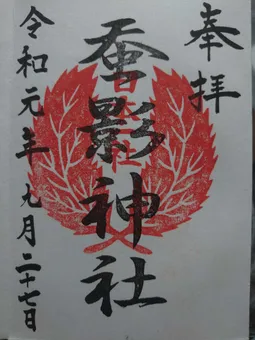 奉拝
蚕影神社
令和元年九月二十七日